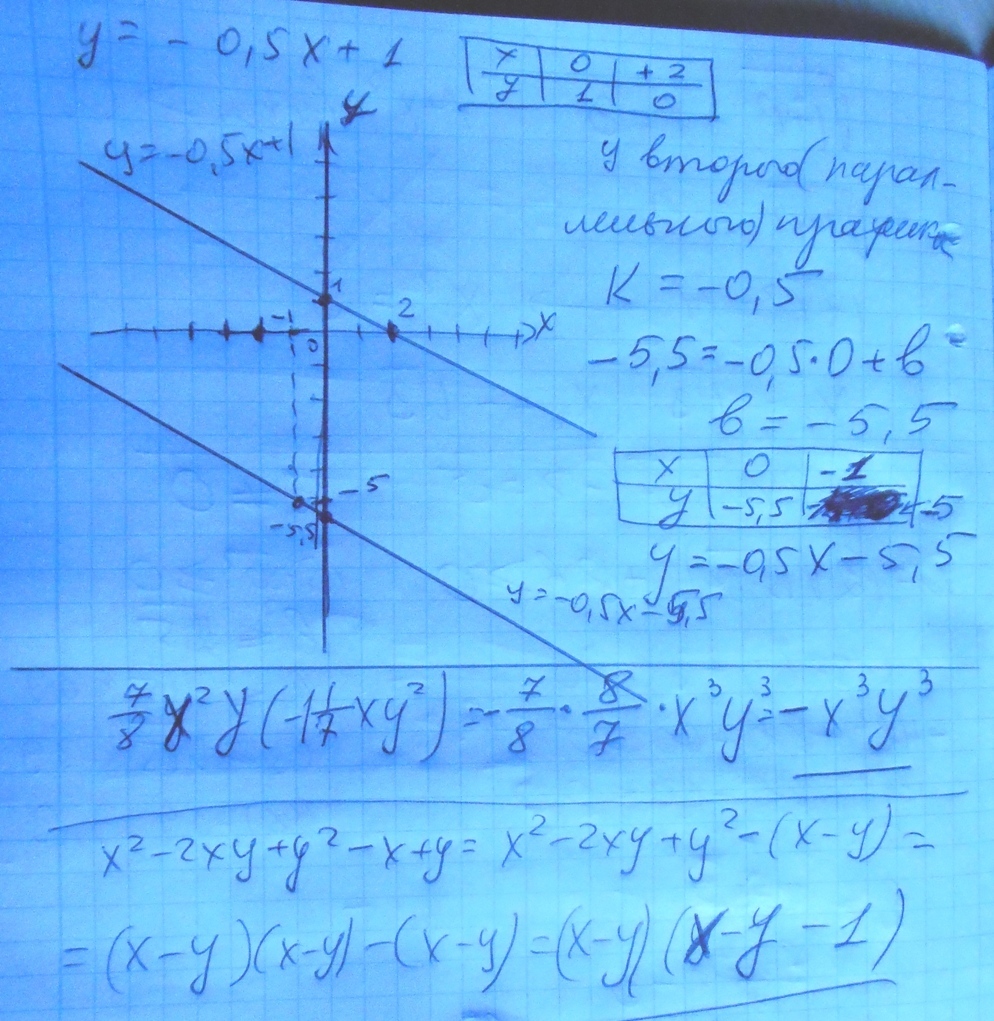 y = - 0,5x + 1
x 0 + 2
y 1 0
y
y = -0,5x+1
1
-1
0
2
x
-5
-5,5
y = -0,5x - 5,5
у второго (парал-
лельного) графика
K = -0,5
-5,5 = -0,5·0 + b
b = -5,5
x 0 -1
y -5,5 -5
y = -0,5x - 5,5
7/8 x²y(-1 1/7 xy²) = -7/8 · 8/7 · x³y³ = -x³y³
x² - 2xy + y² - x + y = x² - 2xy + y² - (x - y) =
= (x - y)(x - y) - (x - y) = (x - y)(x - y - 1)